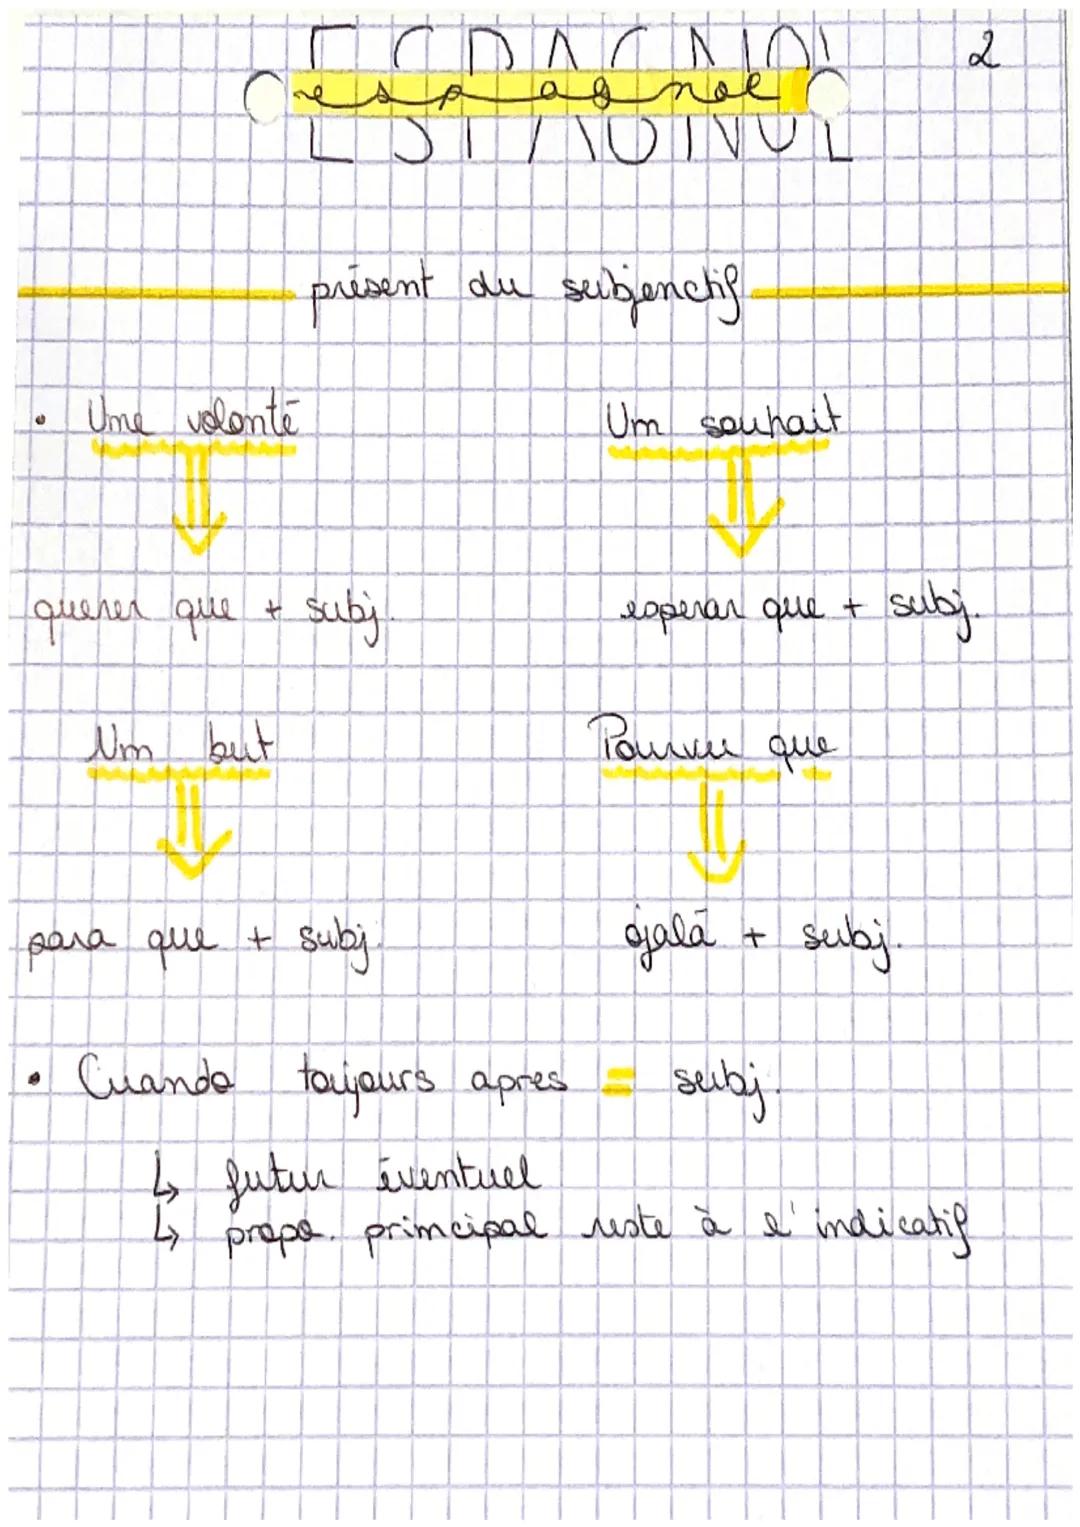 2
ESPAGNOL
espagnol
présent du subjonctif
• Une volonté Un souhait
querer que + subj. esperar que + subj.
Un but Pourvu que
para que + subj. ojalá + subj.
• Cuando toujours apres = subj.
↳ futur éventuel
↳ propo. principal reste à l'indicatif